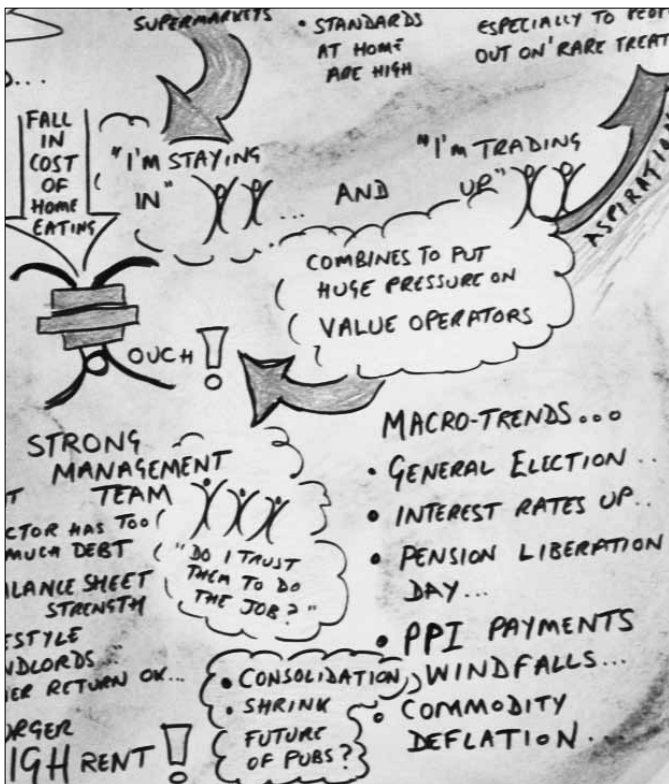 SUPERMARKETS
• STANDARDS
AT HOME
ARE HIGH
ESPECIALLY TO
OUT ON' RARE TREAT
FALL
IN
COST
OF
HOME
EATING
"I'M STAYING
IN"
... AND
"I'M TRADING
UP"
ASPIRATION
COMBINES TO PUT
HUGE PRESSURE ON
VALUE OPERATORS
OUCH !
STRONG
MANAGEMENT
TEAM
"DO I TRUST
THEM TO DO
THE JOB?"
HAS TOO
MUCH DEBT
SHEET
STRENGTH
RETURN OK...
RENT !
• CONSOLIDATION
• SHRINK
FUTURE
OF PUBS?
MACRO-TRENDS...
• GENERAL ELECTION..
• INTEREST RATES UP..
• PENSION LIBERATION
DAY...
• PPI PAYMENTS
WINDFALLS...
• COMMODITY
DEFLATION.